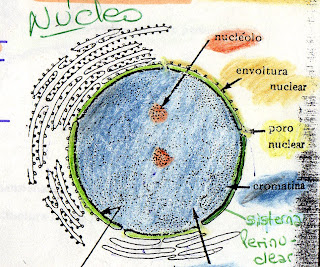 Núcleo
nucléolo
envoltura
nuclear
poro
nuclear
cromatina
sisterna
Perinu-
clear